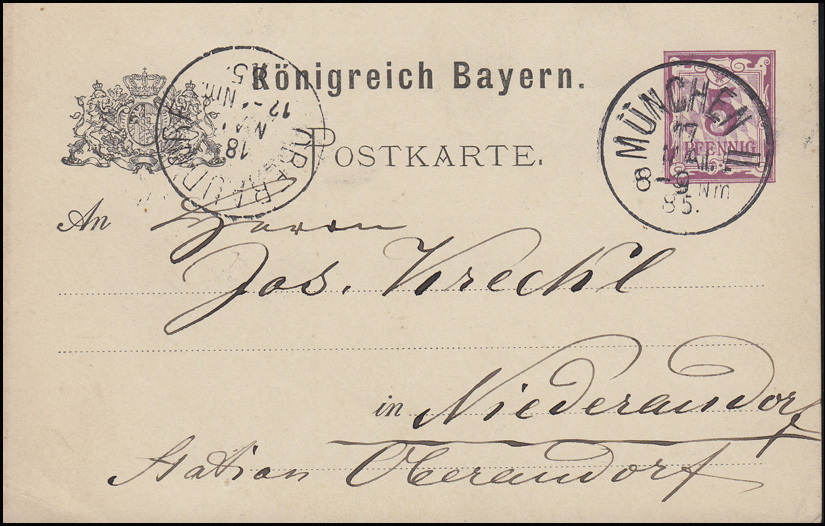 Königreich Bayern.
POSTKARTE.
5
PFENNIG
MÜNCHEN II
17
MAI
8-9 Nm
85.
18
MAI
12-1 Nm.
85.
An Herrn
Jos. Krechl
in Niederaudorf
Station Oberaudorf